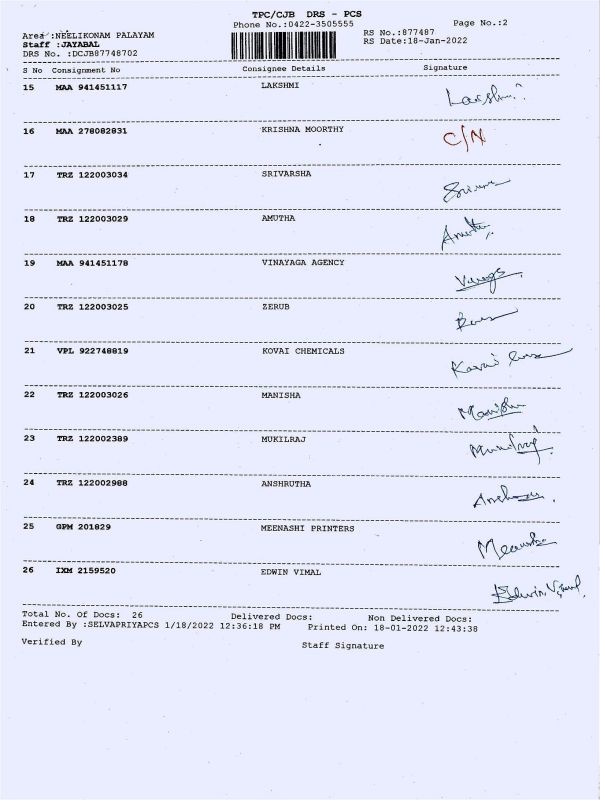 TPC/CJB DRS - PCS
Phone No.:0422-3505555 Page No.:2
Area :NEELIKONAM PALAYAM RS No.:877487
Staff :JAYABAL RS Date:18-Jan-2022
DRS No. :DCJB87748702
S No Consignment No Consignee Details Signature
15 MAA 941451117 LAKSHMI
16 MAA 278082831 KRISHNA MOORTHY C/N
17 TRZ 122003034 SRIVARSHA
18 TRZ 122003029 AMUTHA
19 MAA 941451178 VINAYAGA AGENCY
20 TRZ 122003025 ZERUB
21 VPL 922748819 KOVAI CHEMICALS
22 TRZ 122003026 MANISHA Manisha
23 TRZ 122002389 MUKILRAJ
24 TRZ 122002988 ANSHRUTHA
25 GPM 201829 MEENASHI PRINTERS
26 IXM 2159520 EDWIN VIMAL Edwin Vimal
Total No. Of Docs: 26 Delivered Docs: Non Delivered Docs:
Entered By :SELVAPRIYAPCS 1/18/2022 12:36:18 PM Printed On: 18-01-2022 12:43:38
Verified By Staff Signature